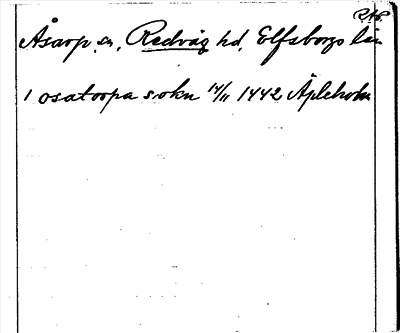 RAP.
Åsarp sn, Redväg hd, Elfsborgs län
i osatorpa sokn 14/11 1442 Äpleholm